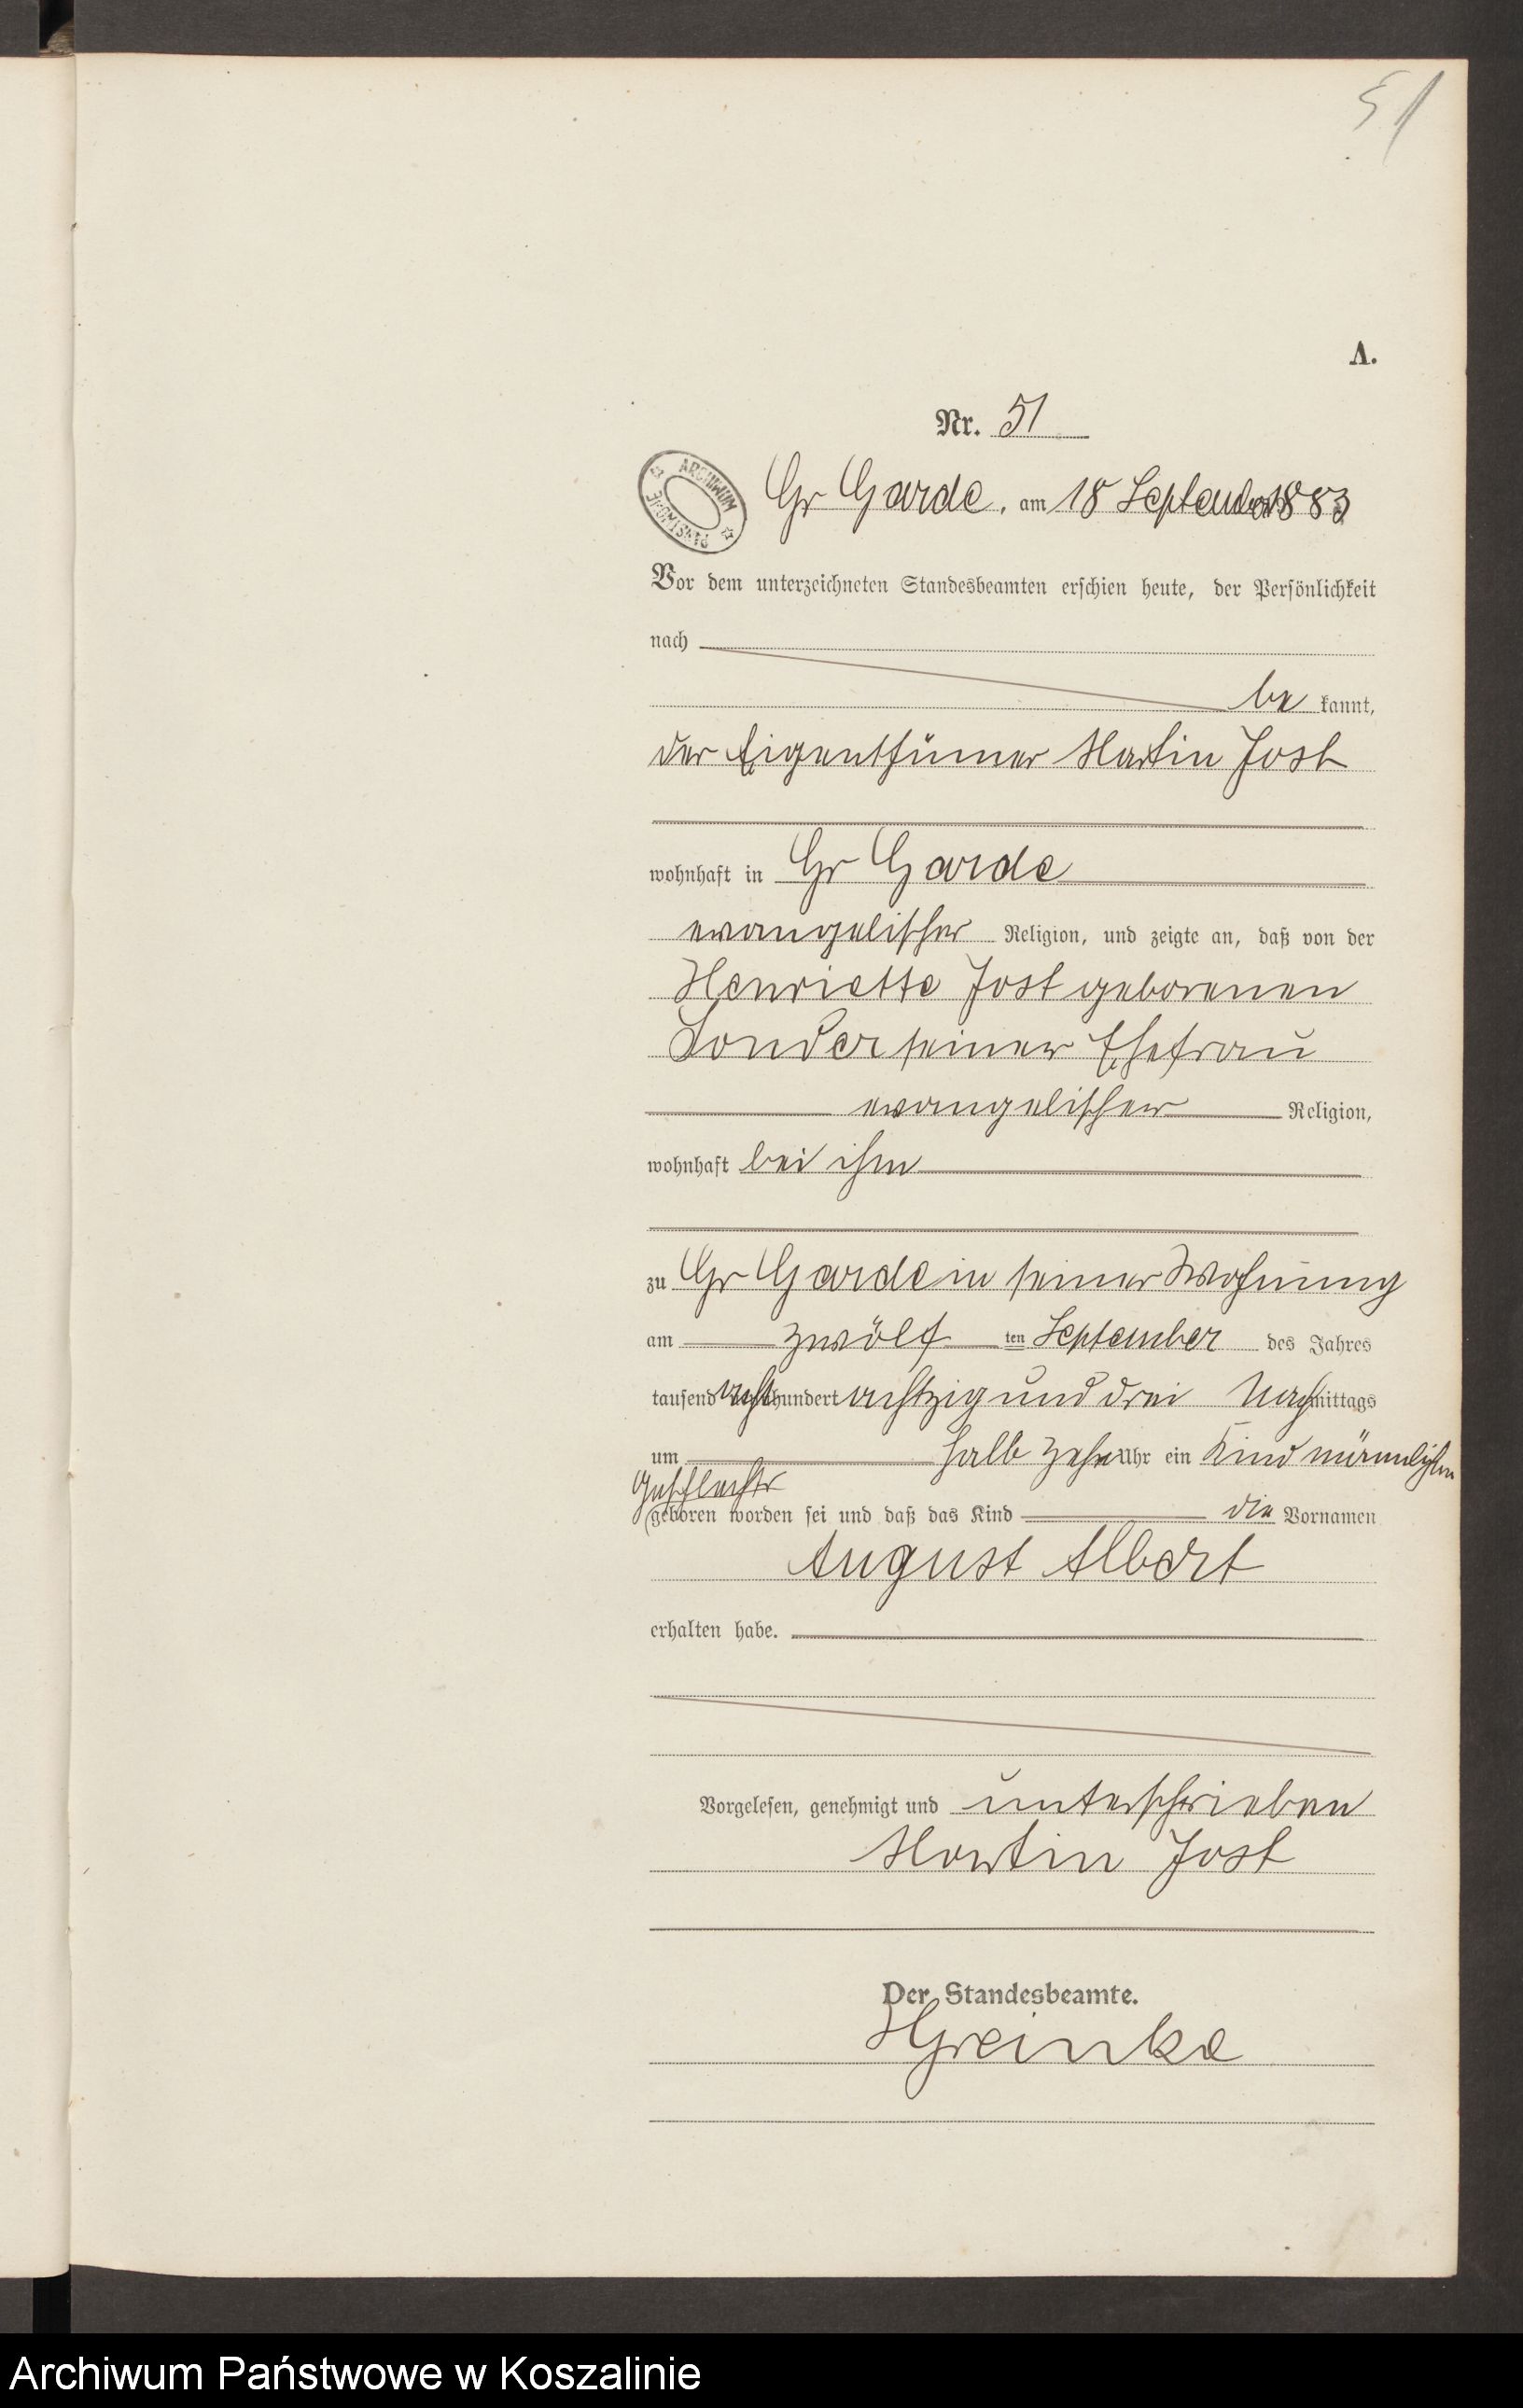 51
A.
Nr. 51
ARCHIWUM PAŃSTWOWE
Gr Garde, am 18 September 1883
Vor dem unterzeichneten Standesbeamten erschien heute, der Persönlichkeit
nach
be kannt,
der Eigenthümer Martin Jost
wohnhaft in Gr Garde
evangelischer Religion, und zeigte an, daß von der
Henriette Jost geborenen
Sonder seiner Ehefrau
evangelischer Religion,
wohnhaft bei ihm
zu Gr Garde in seiner Wohnung
am zwölf ten September des Jahres
tausend acht hundert achtzig und drei Nachmittags
um halb zehn Uhr ein Kind männlichen
Geschlechts
geboren worden sei und daß das Kind die Vornamen
August Albert
erhalten habe.
Vorgelesen, genehmigt und unterschrieben
Martin Jost
Der Standesbeamte.
HGreinke
Archiwum Państwowe w Koszalinie